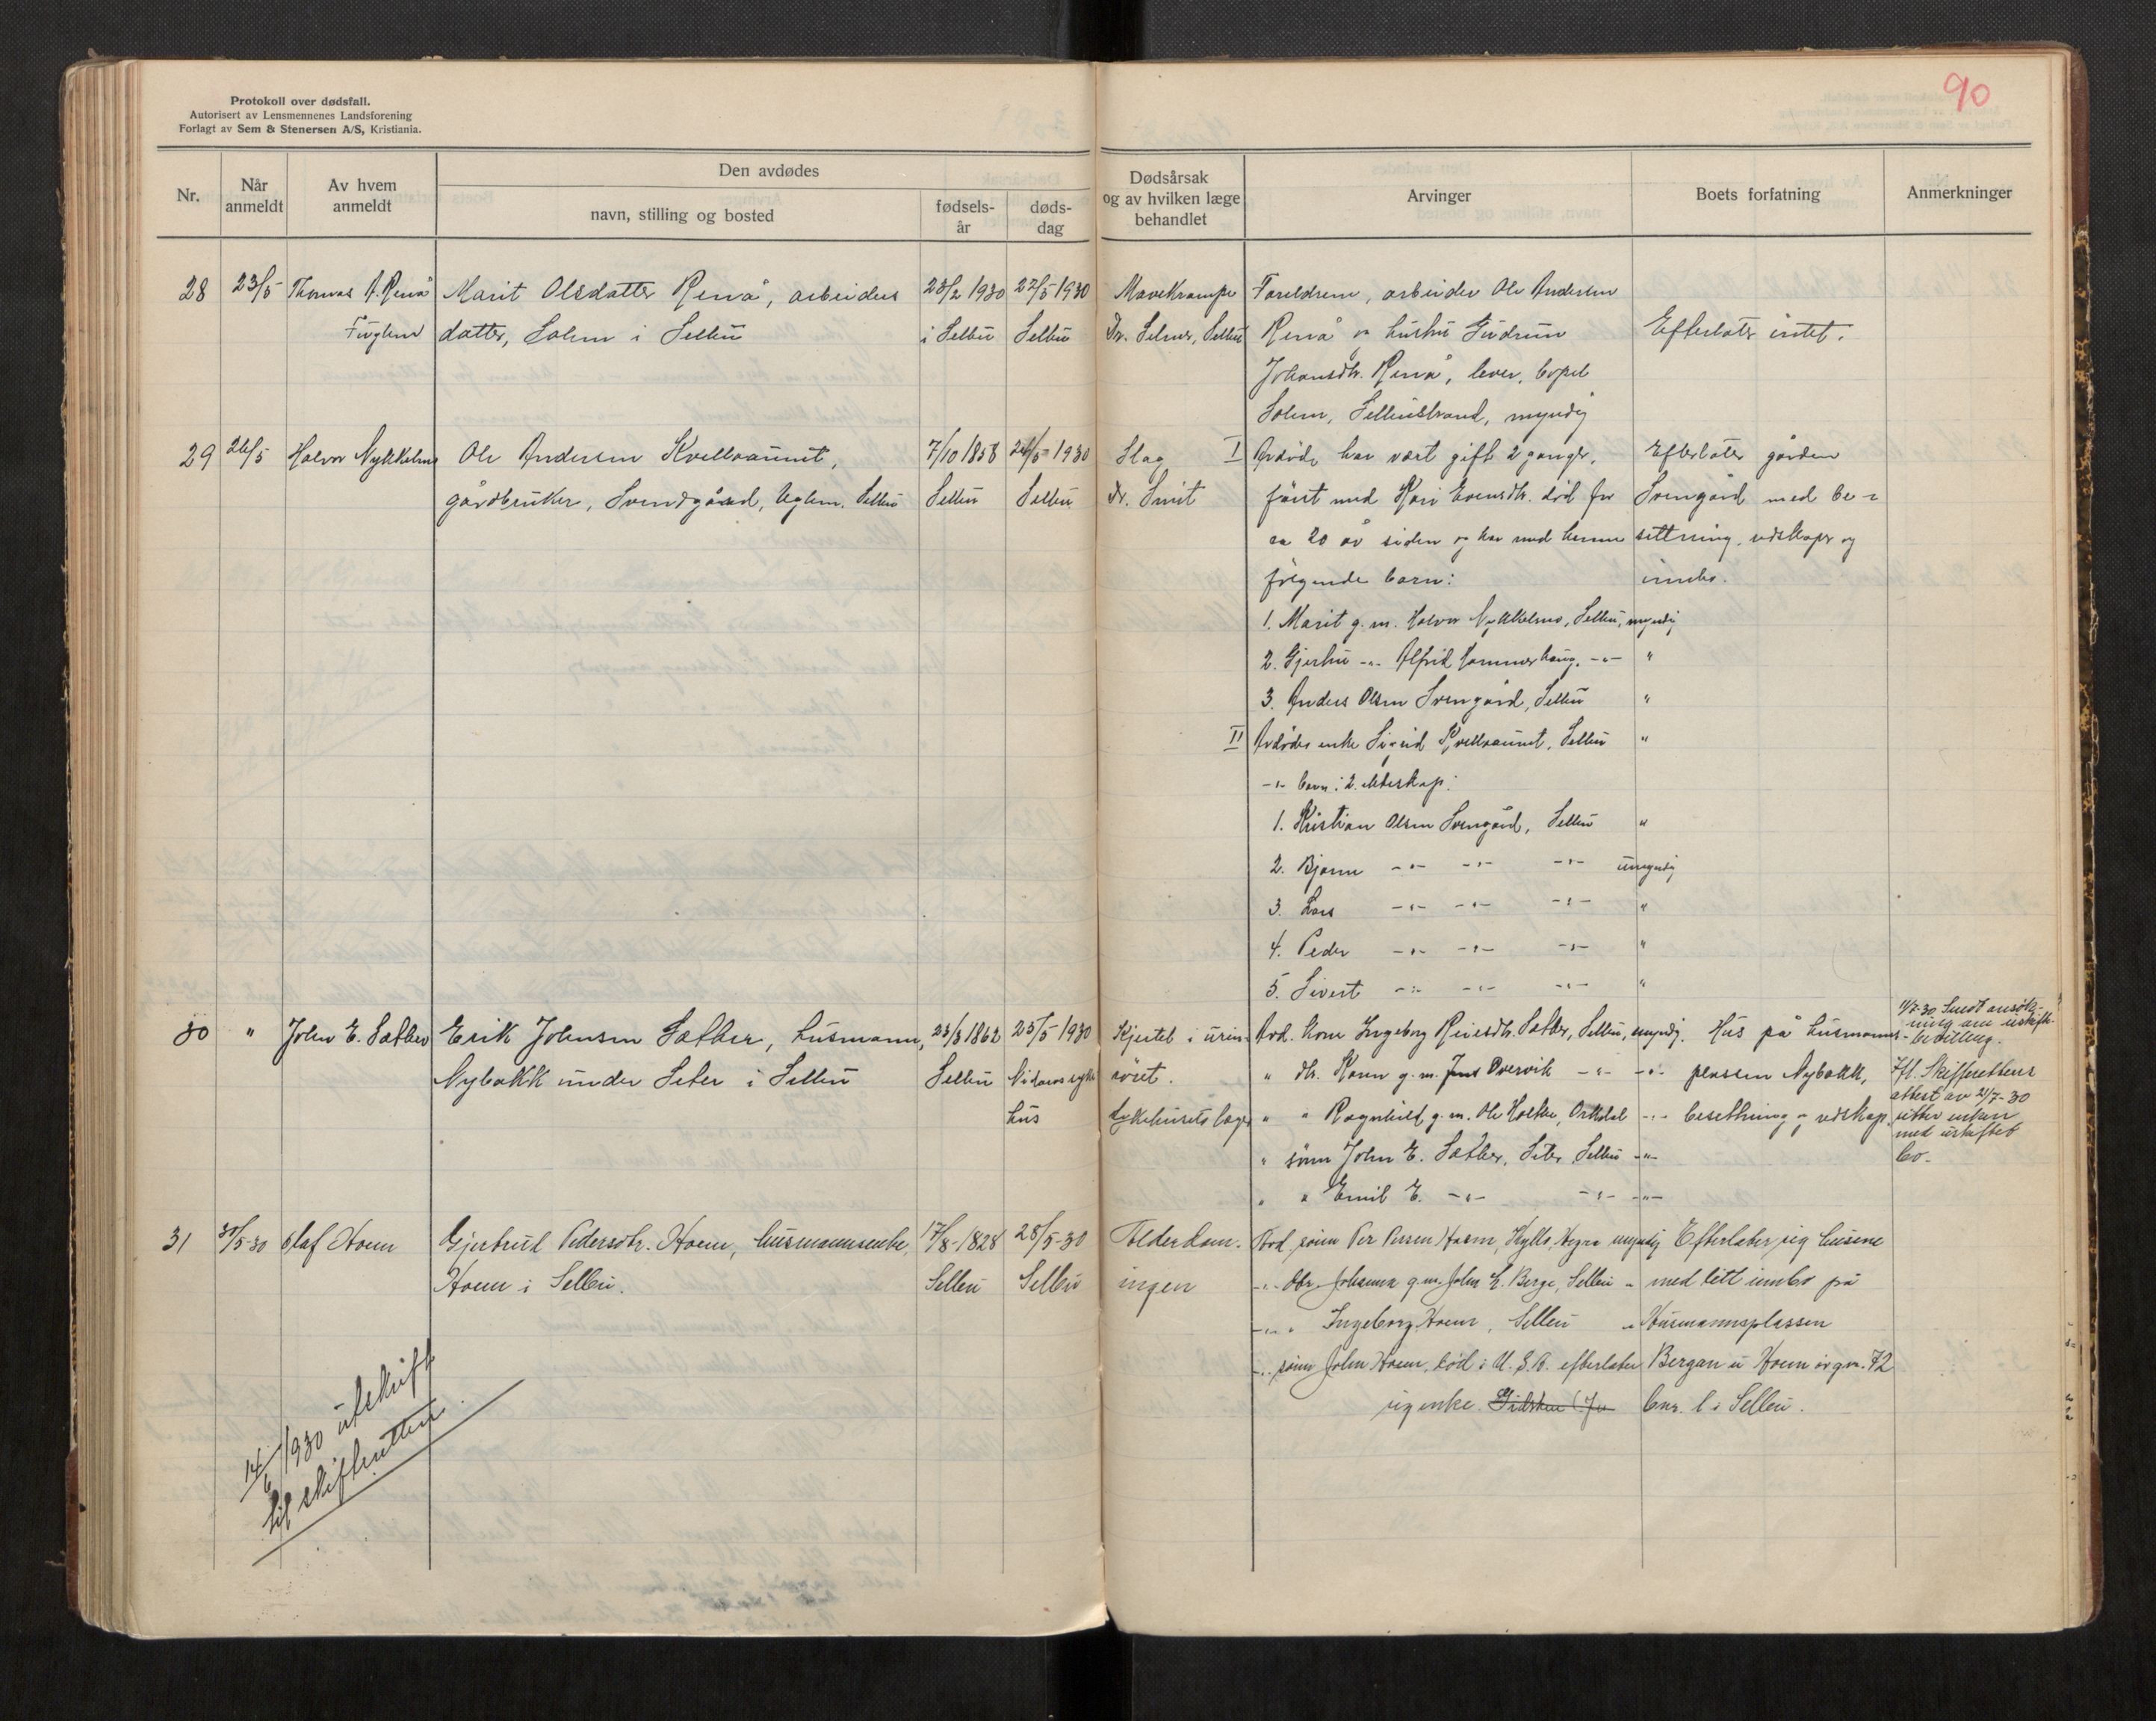 90
Protokoll over dødsfall.
Autorisert av Lensmennenes Landsforening
Forlagt av Sem & Stenersen A/S, Kristiania.
Nr.
Når anmeldt
Av hvem anmeldt
Den avdødes
navn, stilling og bosted
fødsels-år
døds-dag
Dødsårsak og av hvilken læge behandlet
Arvinger
Boets forfatning
Anmerkninger
28 23/5 Thomas A. Renå Marit Olsdatter Renå, arbeiders 23/2 1930 22/5 1930 Mavekrampe Foreldrene, arbeider Ole Andersen
Fuglem datter, Solem i Selbu i Selbu Selbu Dr. Selmer, Selbu Renå og hustru Gudrun Efterlater intet.
Johansdtr. Renå, lever, bopel
Solem, Selbustrand, myndig
29 26/5 Halvor Nykkelmo Ole Andersen Kvellraunet, 7/10 1858 24/5 1930 Slag I Avdøde har vært gift 2 ganger, Efterlater gården
gårdbruker, Svendgård, Uglem, Selbu Selbu Selbu Dr. Smit først med Kari Evensdtr. død for Svengård med be-
ca 20 år siden og har med henne settning, redskaper og
følgende barn: innbo.
1. Marit g. m. Halvor Nykkelmo, Selbu, myndig
2. Gjertru -"- Alfrid Hammerhaug, -"- "
3. Anders Olsen Svengård, Selbu "
II Avdødes enke Sigrid Kvellraunet, Selbu "
-"- barn i 2. ekteskap:
1. Kristian Olsen Svengård, Selbu "
2. Bjarne -"- -"- -"- umyndig
3. Lars -"- -"- -"- "
4. Peder -"- -"- -"- "
5. Sivert -"- -"- -"- "
30 " John E. Sæther Erik Johnsen Sæther, husmann, 23/3 1862 25/5 1930 Kjertel i urin- Avd. kone Ingeborg Sæther, Selbu, myndig. Hus på husmanns-
Nybakk under Seter i Selbu Selbu Nidaros syke røret. " dtr. Karen g. m. Jens Overvik -"- -"- plassen Nybakk,
hus Sykehusets læge " " Ragnhild g. m. Ole Holthe, Orkdal -"- besetning og redskap.
" sønn John E. Sæther, Seter, Selbu -"-
" " Emil E. -"- -"- -"-
11/7-30 Sendt ansøk-
ning om uskifte-
bevilling.
Ifl. Skifterettens
attest av 21/7-30
sitter enken
med uskiftet
bo.
31 30/5-30 Olaf Hoem Gjertrud Pedersdtr. Hoem, husmannsenke, 17/8-1828 28/5-30 Alderdom. Avd. sønn Per Persen Hoem, Hegra myndig Efterlater sig husene
Hoem i Selbu. Selbu Selbu ingen -"- dtr. Johanna g.m. John E. Berge, Selbu " med litt innbo på
-"- " Ingeborg Hoem, Selbu " Husmannsplassen
-"- sønn John Hoem, død i U.S.A. efterlater Bergan u Hoem av gnr. 72
sig enke. bnr. 1 i Selbu.
14/6 1930 utskrift
til skifteretten.